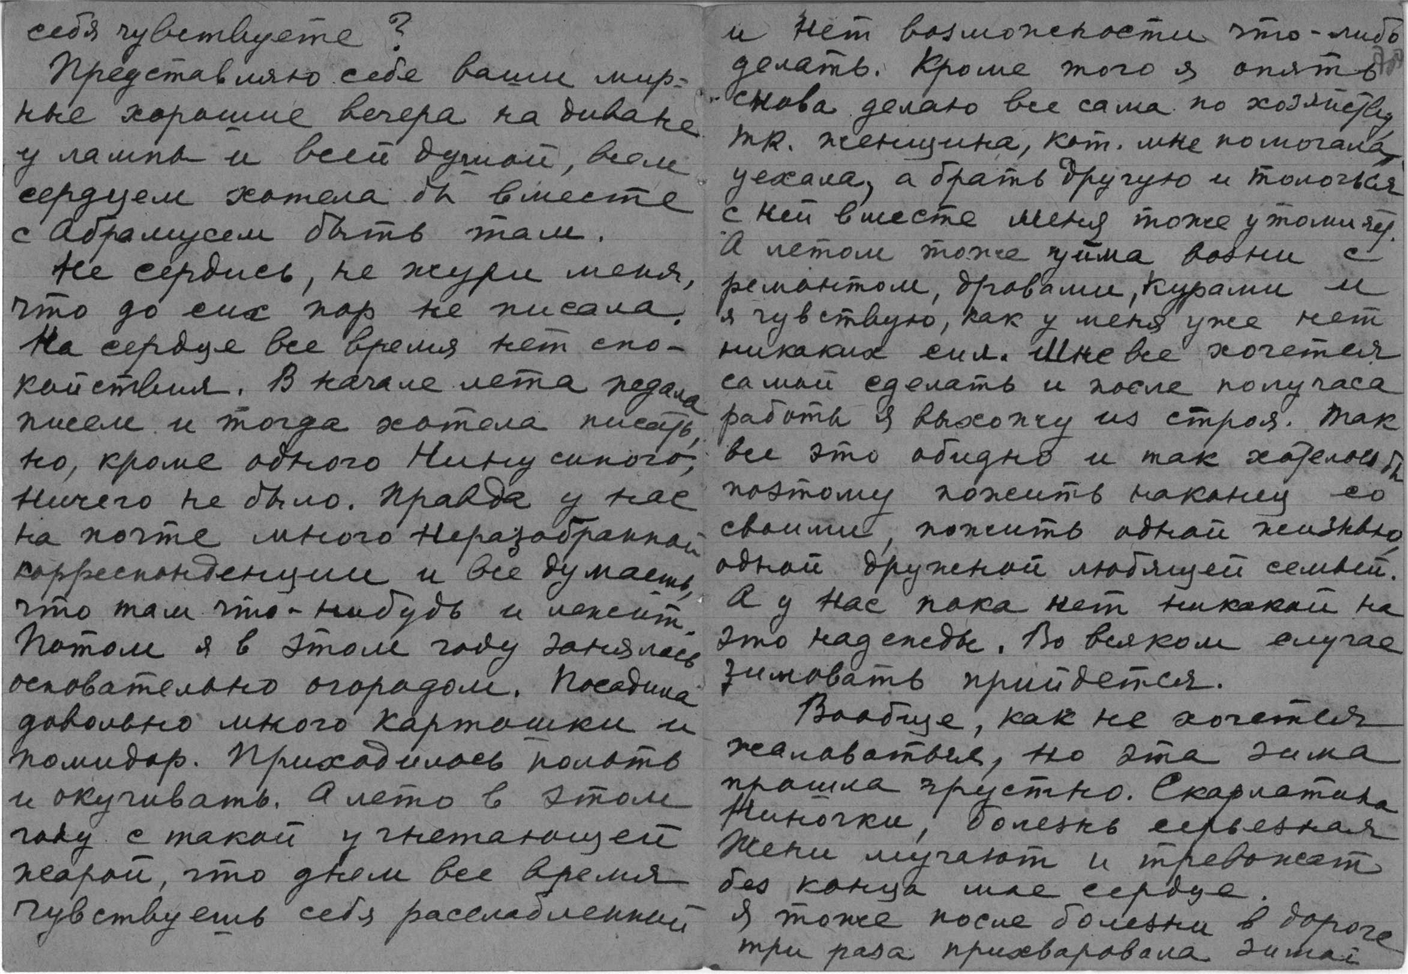 себя чувствуете?
Представляю себе ваши мир-
ные хорошие вечера на диване
у лампы и всей душой, всем
сердцем хотела бы вместе
с Абрамусем быть там.
Не сердись, не жури меня,
что до сих пор не писала.
На сердце все время нет спо-
койствия. В начале лета ждала
писем и тогда хотела писать,
но, кроме одного Нинусиного,
ничего не было. Правда у нас
на почте много неразобранной
корреспонденции и все думаешь,
что там что-нибудь и лежит.
Потом я в этом году занялась
основательно огородом. Посадила
довольно много картошки и
помидор. Приходилось полоть
и окучивать. А лето в этом
году с такой угнетающей
жарой, что днем все время
чувствуешь себя расслабленной
и нет возможности что-либо
делать. Кроме того я опять
снова делаю все сама по хозяйству,
тк. женщина, кот. мне помогала,
уехала, а брать другую и толочься
с ней вместе меня тоже утомляет.
А летом тоже уйма возни с
ремонтом, дровами, курами и
я чувствую, как у меня уже нет
никаких сил. Мне все хочется
самой сделать и после получаса
работы я выхожу из строя. Так
все это обидно и так хотелось бы
поэтому пожить наконец со
своими, пожить одной жизнью,
одной дружной любящей семьей.
А у нас пока нет никакой на
это надежды. Во всяком случае
зимовать прийдется.
Вообще, как не хочется
жаловаться, но эта зима
прошла грустно. Скарлатина
Ниночки, болезнь серьезная
Жени мучают и тревожат
без конца мое сердце.
Я тоже после болезни в дороге
три раза прихварывала зимой